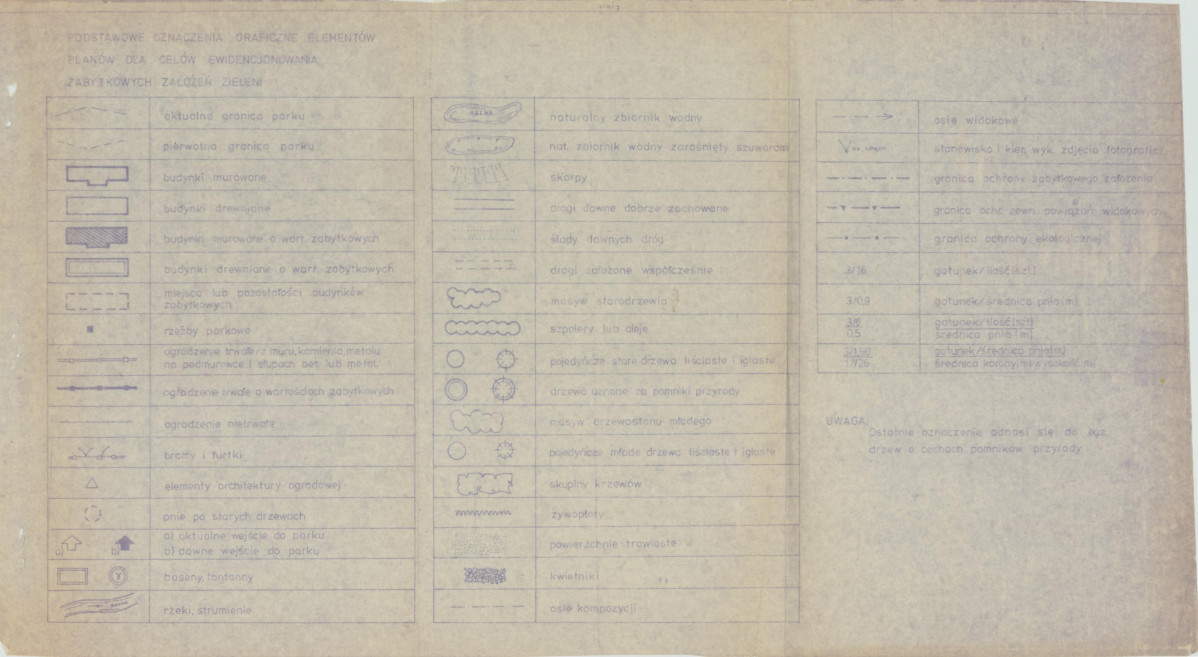 PODSTAWOWE OZNACZENIA GRAFICZNE ELEMENTÓW
PLANÓW DLA CELÓW EWIDENCJONOWANIA
ZABYTKOWYCH ZAŁOŻEŃ ZIELENI
aktualna granica parku
pierwotna granica parku
budynki murowane
budynki drewniane
budynki murowane o wart. zabytkowych
budynki drewniane o wart. zabytkowych
miejsca lub pozostałości budynków
zabytkowych
rzeźby parkowe
ogrodzenie trwałe z muru, kamienia, metalu
na podmurówce i słupach bet. lub metal.
ogrodzenie trwałe o wartościach zabytkowych
ogrodzenie nietrwałe
bramy i furtki
elementy architektury ogrodowej
pnie po starych drzewach
a) b) a) aktualne wejście do parku
b) dawne wejście do parku
baseny, fontanny
rzeki, strumienie
naturalny zbiornik wodny
nat. zbiornik wodny zarośnięty szuwarami
skarpy
drogi dawne dobrze zachowane
ślady dawnych dróg
drogi założone współcześnie
masyw starodrzewia
szpalery lub aleje
pojedyńcze stare drzewa liściaste i iglaste
drzewa uznane za pomniki przyrody
masyw drzewostanu młodego
pojedyńcze młode drzewa liściaste i iglaste
skupiny krzewów
żywopłoty
powierzchnie trawiaste
kwietniki
osie kompozycji
osie widokowe
stanowisko i kier. wyk. zdjęcia fotograficz.
granica ochrony zabytkowego założenia
granica ochr. zewn. powiązań widokowych
granica ochrony ekologicznej
3/16 gatunek/ilość (szt)
3/0,9 gatunek/średnica pnia (m)
3/6 gatunek/ilość (szt)
0,5 średnica pnia (m)
gatunek/średnica pnia (m)
17/26 średnica korony (m) wysokość (m)
UWAGA:
Ostatnie oznaczenie odnosi się do egz.
drzew o cechach pomników przyrody